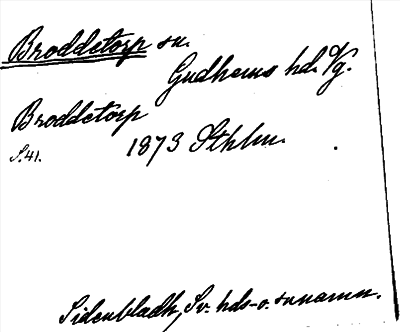 Broddetorp sn.
Gudhems hd. Vg.
Broddetorp
S. 41. 1873 Sthlm.
Sidenbladh, Sv. hds- o. snnamn.